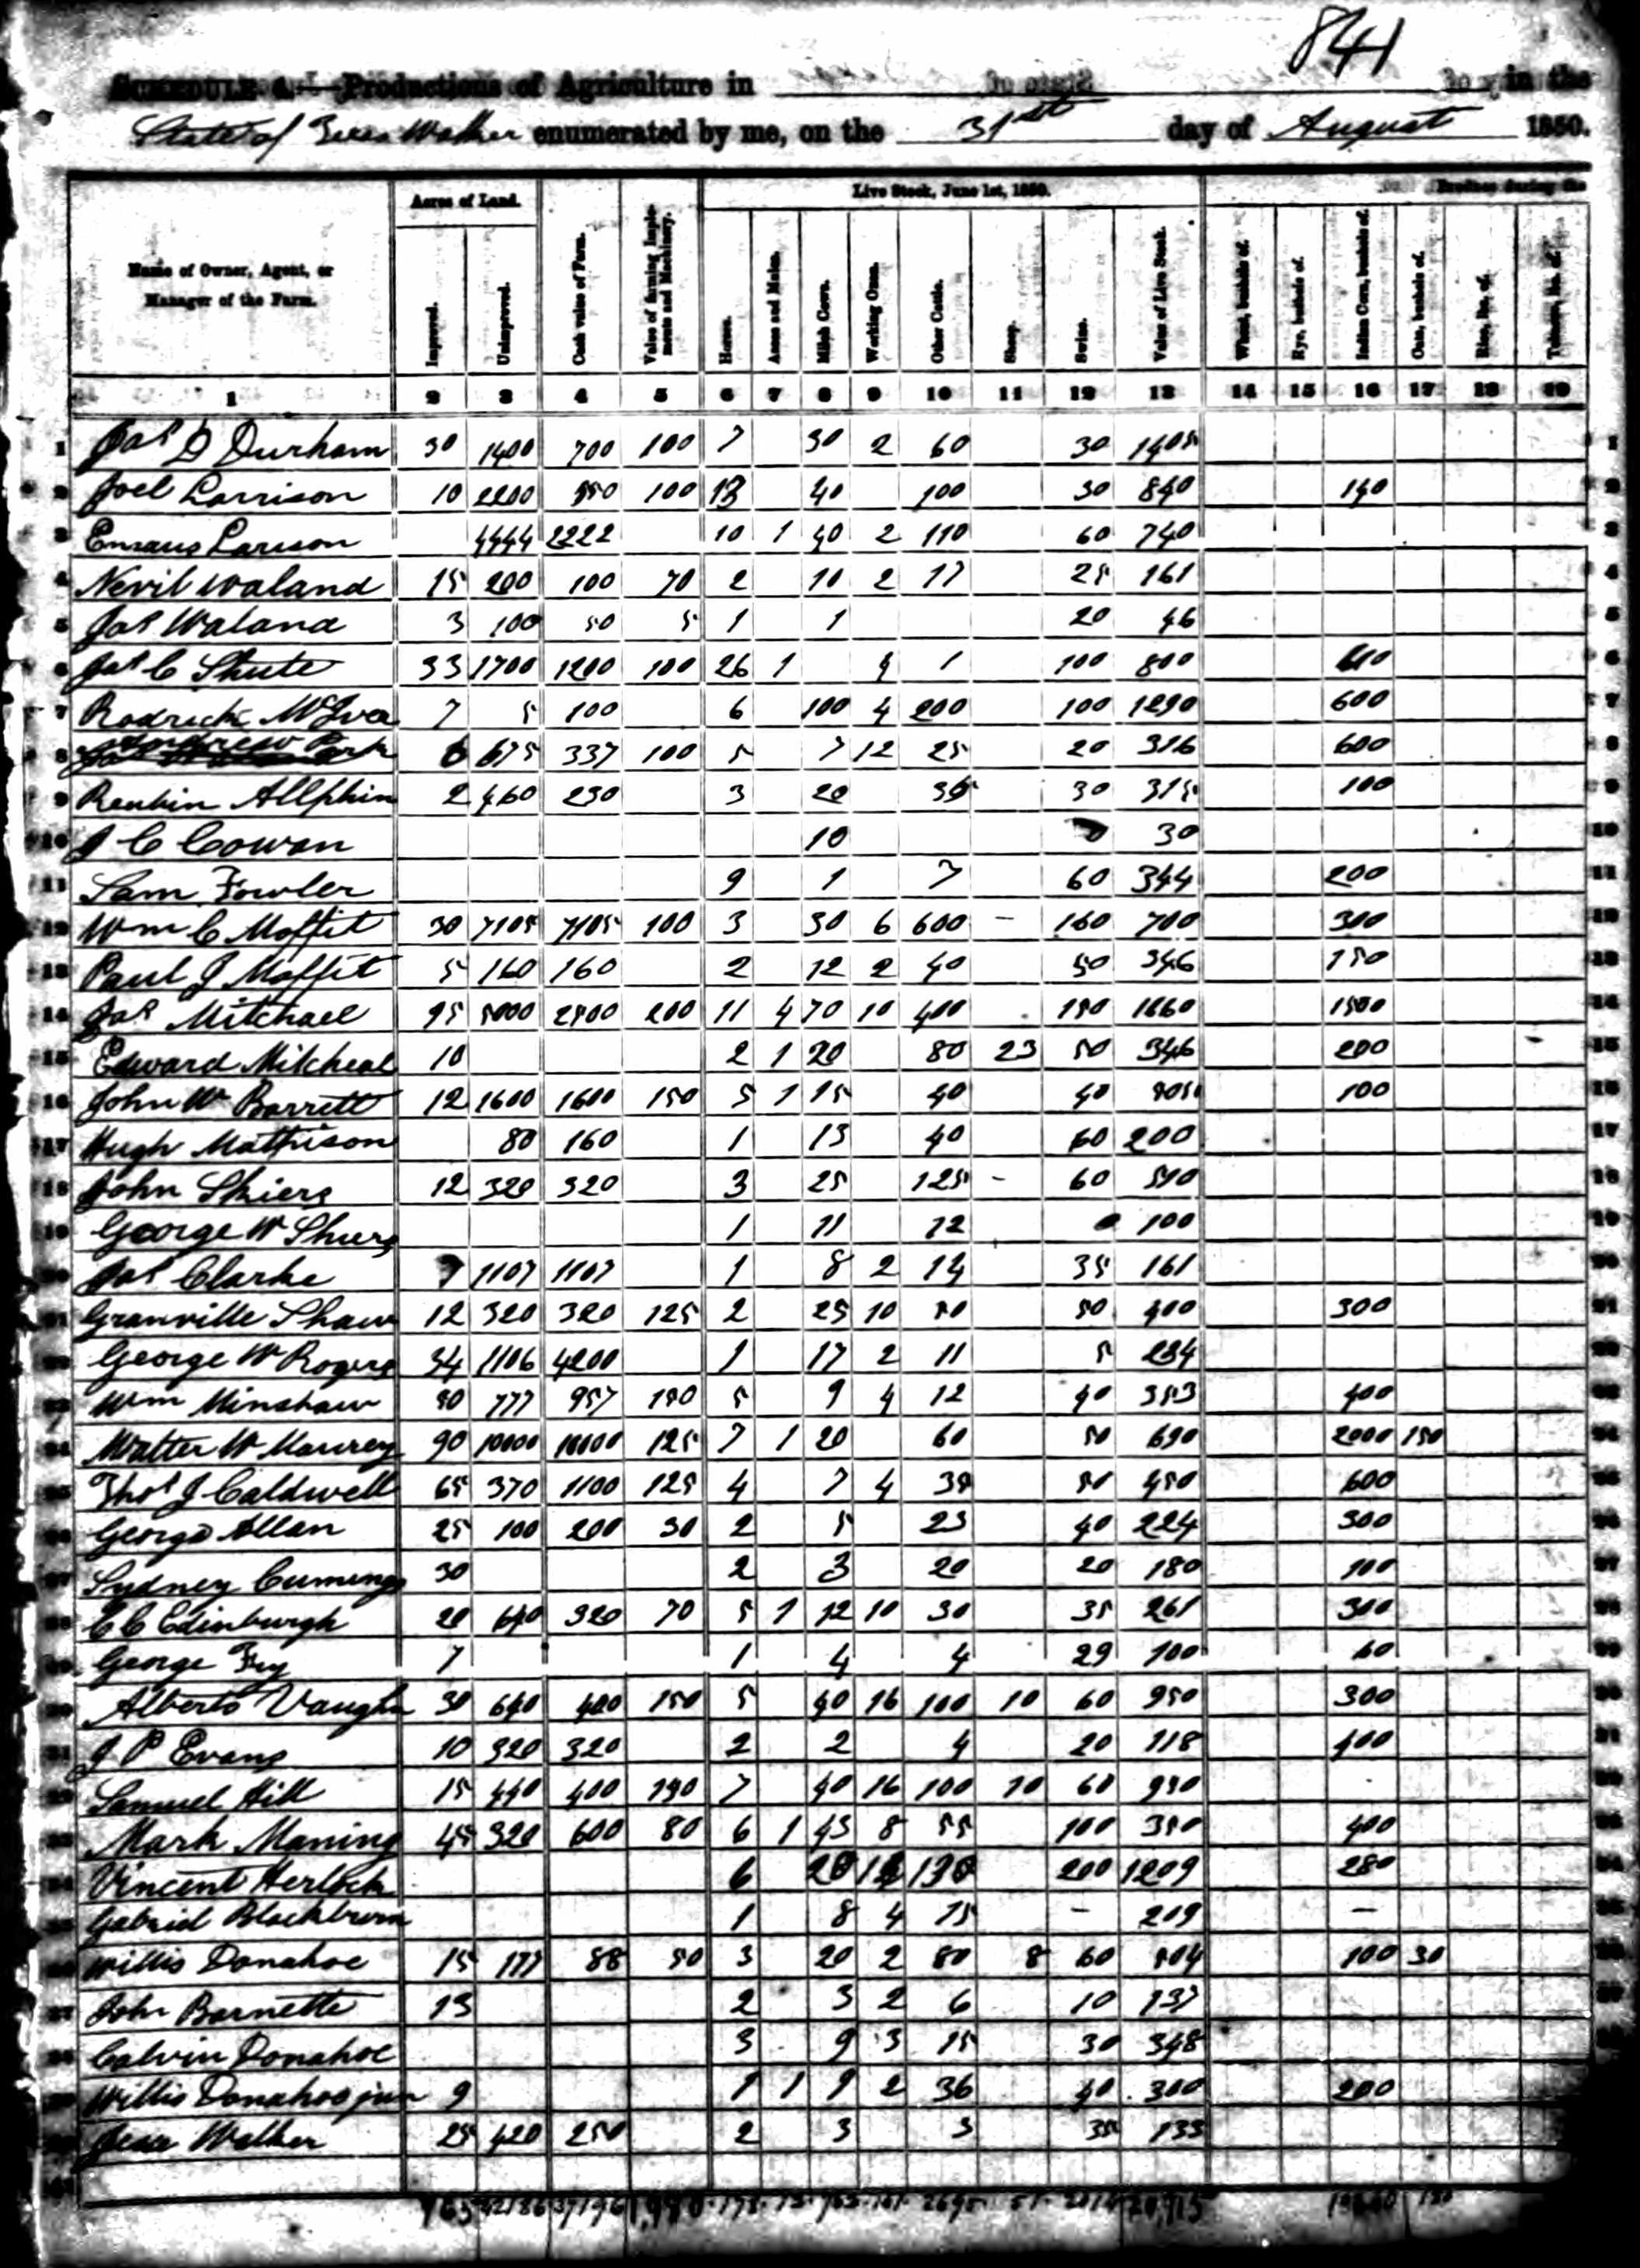 841
SCHEDULE 4.—Productions of Agriculture in in the
State of enumerated by me, on the 31st day of August 1850.
Name of Owner, Agent, or Manager of the Farm. Acres of Land. Improved. Unimproved. Cash value of Farm. Value of farming Implements and Machinery. Live Stock, June 1st, 1850. Horses. Asses and Mules. Milch Cows. Working Oxen. Other Cattle. Sheep. Swine. Value of Live Stock. Produce during the Wheat, bushels of. Rye, bushels of. Indian Corn, bushels of. Oats, bushels of. Rice, lbs. of. Tobacco, lbs. of.
1 2 3 4 5 6 7 8 9 10 11 12 13 14 15 16 17 18 19
1 Jas D Durham 30 1400 700 100 7 30 2 60 30 1405
2 Joel Larrison 10 2200 100 13 40 100 30 840 140
3 Larison 4444 2222 10 1 40 2 110 60 740
4 Nevil Waland 15 200 100 70 2 10 2 17 25 161
5 Jas Waland 3 100 50 5 1 1 20 46
6 Jas C Shute 33 1700 1200 100 26 1 4 1 100 800
7 Rodrick McIver 7 5 100 6 100 4 200 100 1290 600
8 Andrew Park 6 675 337 100 5 7 12 25 20 316 600
9 Reubin Allphin 2 460 230 3 20 35 30 315 100
10 J C Cowan 10 30
11 Sam Fowler 9 1 7 60 344 200
12 Wm C Moffit 30 7105 7105 100 3 30 6 600 – 160 700 300
13 Paul J Moffit 5 160 160 2 12 2 40 50 346 150
14 Jas Mitchael 95 5000 2500 200 11 4 70 10 400 150 1660 1500
15 Edward Mitcheal 10 2 1 20 80 23 50 346 200
16 John W Barrett 12 1600 1600 150 5 1 15 40 40 100
17 Hugh Mathison 80 160 1 13 40 60 200
18 John Shiers 12 320 320 3 25 125 – 60 510
19 George W Shiers 1 11 12 100
20 Jas Clarke 1107 1107 1 8 2 14 35 161
21 Granville Shaw 12 320 320 125 2 25 10 50 50 400 300
22 George W Rogers 34 1106 4200 1 17 2 11 5 234
23 Wm Minshaw 50 777 957 150 5 9 4 12 40 353 400
24 Walter W Maurey 90 10000 10000 125 7 1 20 60 50 690 2000 150
25 Thos J Caldwell 65 370 1100 125 4 7 4 35 50 450 600
26 George Allan 25 100 200 30 2 5 23 40 224 300
27 Sydney Cumings 30 2 3 20 20 180 100
28 C C Edinburgh 20 640 320 70 5 1 12 10 30 35 261 300
29 George Fry 7 1 4 4 29 100 60
30 Alberto Vaughn 30 640 400 150 5 40 16 100 10 60 950 300
31 J P Evans 10 320 320 2 2 4 20 118 400
32 Samuel Hill 15 440 400 150 7 40 16 100 10 60 950
33 Mark Maning 45 320 600 80 6 1 45 8 55 100 350 400
34 Vincent Herlock 6 20 130 200 1209 280
35 Gabriel Blackburn 1 8 4 15 – 209 –
36 Willis Donahoe 15 177 88 50 3 20 2 80 8 60 504 100 30
37 John Barnette 13 2 3 2 6 10 137
38 Calvin Donahoe 3 9 3 15 30 348
39 Willis Donahoe jun 9 1 1 9 2 36 40 300 200
40 Walker 25 420 250 2 3 3 35 133